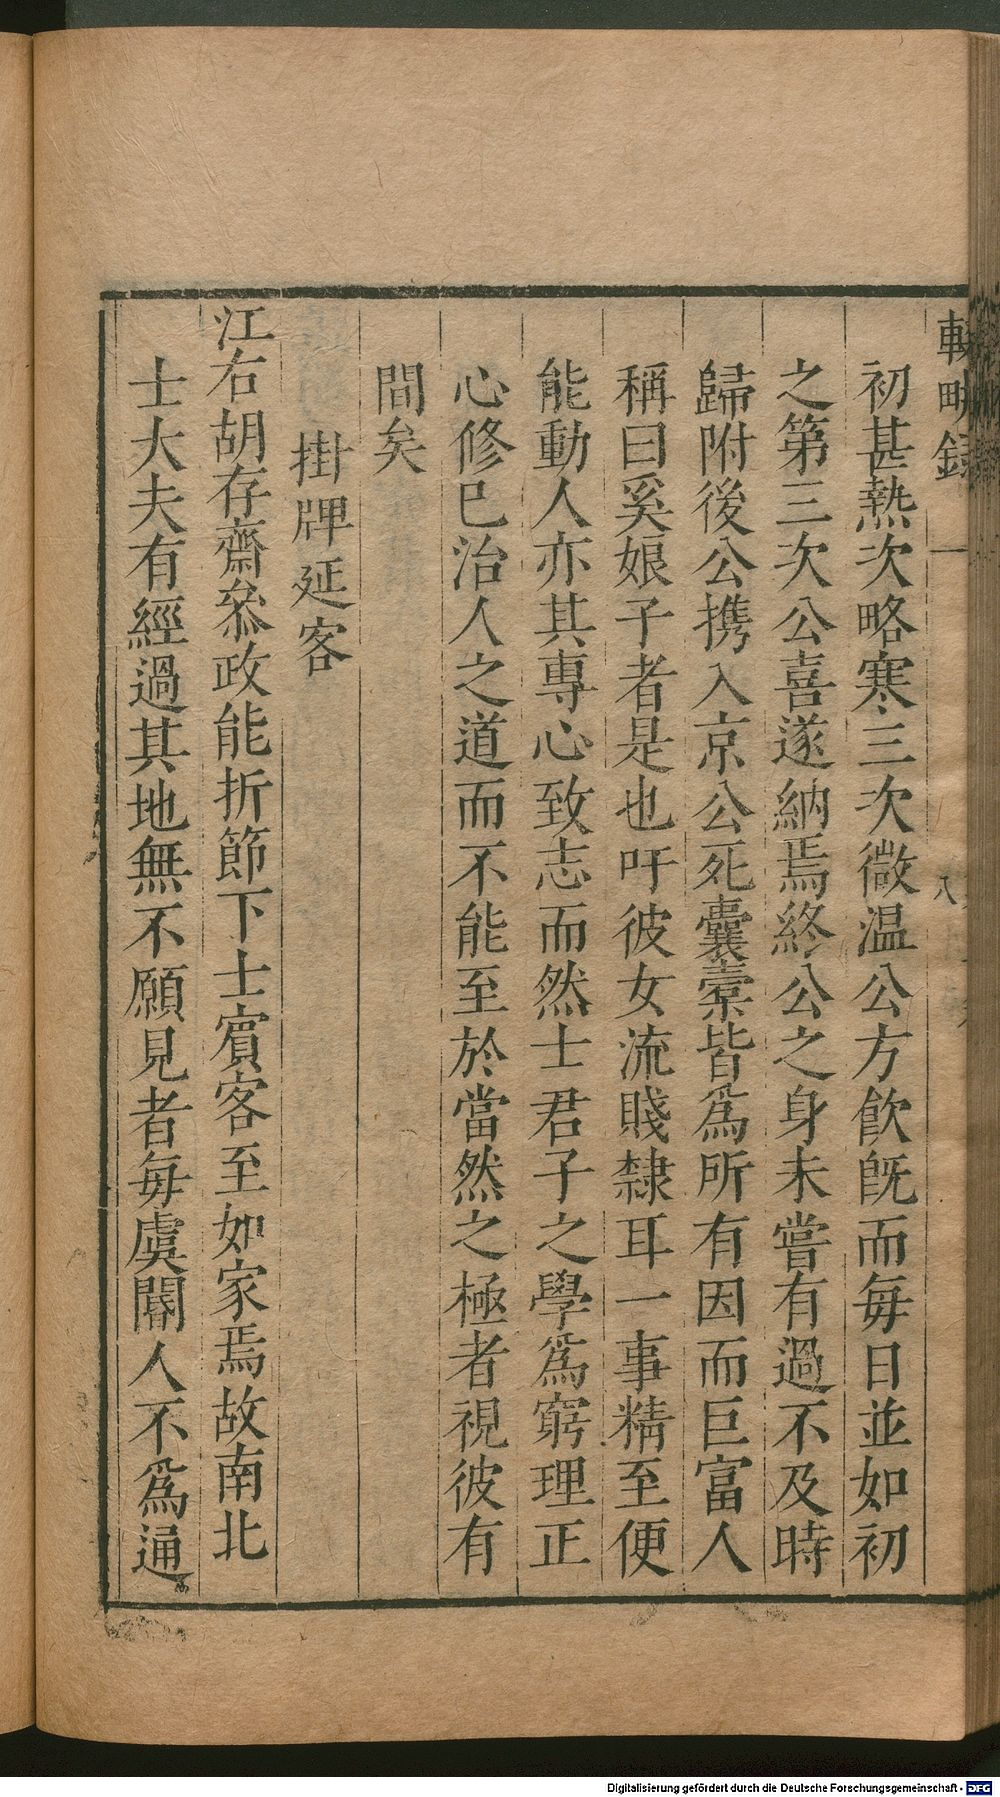 輟畊錄 一 八
初甚熱次略寒三次微温公方飲旣而每日並如初
之第三次公喜遂納焉終公之身未嘗有過不及時
歸附後公携入京公死囊橐皆爲所有因而巨富人
稱曰奚娘子者是也吁彼女流賤隸耳一事精至便
能動人亦其專心致志而然士君子之學爲窮理正
心修巳治人之道而不能至於當然之極者視彼有
間矣
掛牌延客
江右胡存齋叅政能折節下士賓客至如家焉故南北
士大夫有經過其地無不願見者毎虞閽人不爲通
Digitalisierung gefördert durch die Deutsche Forschungsgemeinschaft - DFG